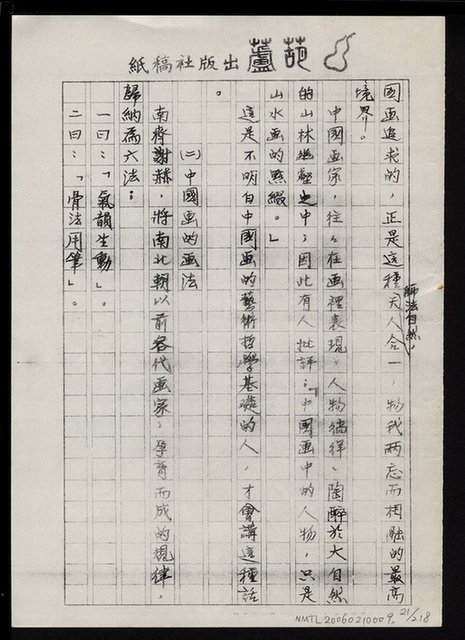 葫蘆出版社稿紙
師法自然，
国画追求的，正是這種天人合一，物我两忘而相融的最高
境界！
中國画家，往々在画裡表現，人物徜徉、陶醉於大自然
的山林幽壑之中；因此有人批評：「中国画中的人物，只是
山水画的點綴。」
這是不明白中國画的藝術哲學基礎的人，才會講這種話
。
㈡中國画的画法
南齊謝赫，將南北朝以前各代画家，孕育而成的規律，
歸納為六法：
一曰：「氣韻生動」。
二曰：「骨法用筆」。
NMTL20060210009, 21/218